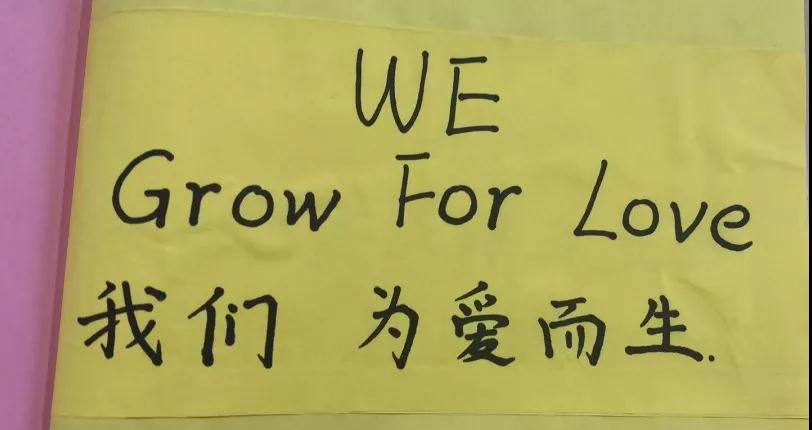 WE
Grow For Love
我们 为爱而生.